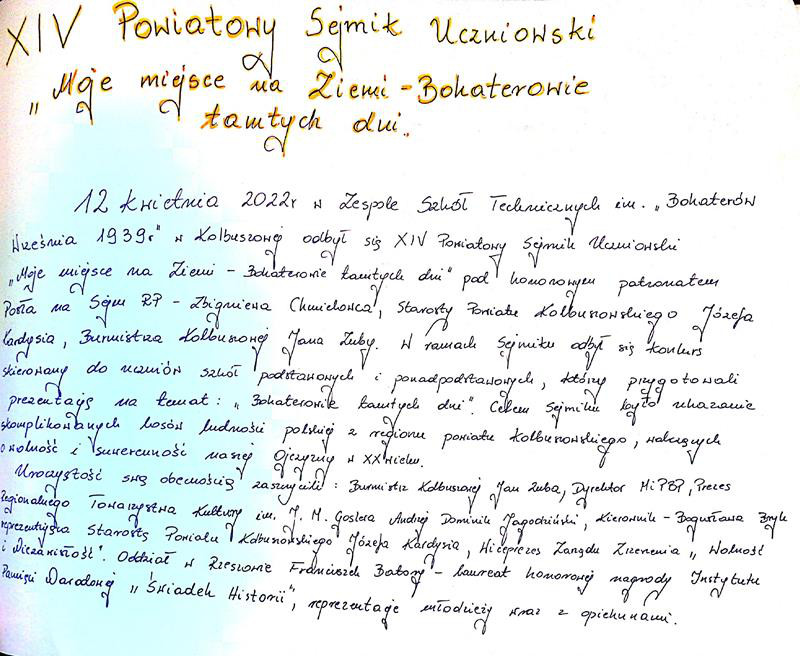 XIV Powiatowy Sejmik Uczniowski
„Moje miejsce na Ziemi - Bohaterowie
tamtych dni.
12 kwietnia 2022r w Zespole Szkół Technicznych im. „Bohaterów
Września 1939r" w Kolbuszowej odbył się XIV Powiatowy Sejmik Uczniowski
„Moje miejsce na Ziemi - Bohaterowie tamtych dni" pod honorowym patronatem
Posła na Sejm RP - Zbigniewa Chmielowca, Starosty Powiatu Kolbuszowskiego Józefa
Kardysia, Burmistrza Kolbuszowej Jana Zuby. W ramach Sejmiku odbył się konkurs
skierowany do uczniów szkół podstawowych i ponadpodstawowych, którzy przygotowali
prezentację na temat: „Bohaterowie tamtych dni". Celem Sejmiku było ukazanie
skomplikowanych losów ludności polskiej z regionu powiatu kolbuszowskiego, walczących
o wolność i suwerenność naszej Ojczyzny w XX wieku.
Uroczystość swą obecnością zaszczycili: Burmistrz Kolbuszowej Jan Zuba, Dyrektor MiPBP, Prezes
Regionalnego Towarzystwa Kultury im. J. M. Goslara Andrzej Dominik Jagodziński, Kierownik - Bogusława Bryk
reprezentująca Starostę Powiatu Kolbuszowskiego Józefa Kardysia, Wiceprezes Zarządu Zrzeszenia „Wolność
i Niezawisłość". Oddział w Rzeszowie Franciszek Batory - laureat honorowej nagrody Instytutu
Pamięci Narodowej „Świadek Historii", reprezentacje młodzieży wraz z opiekunami.